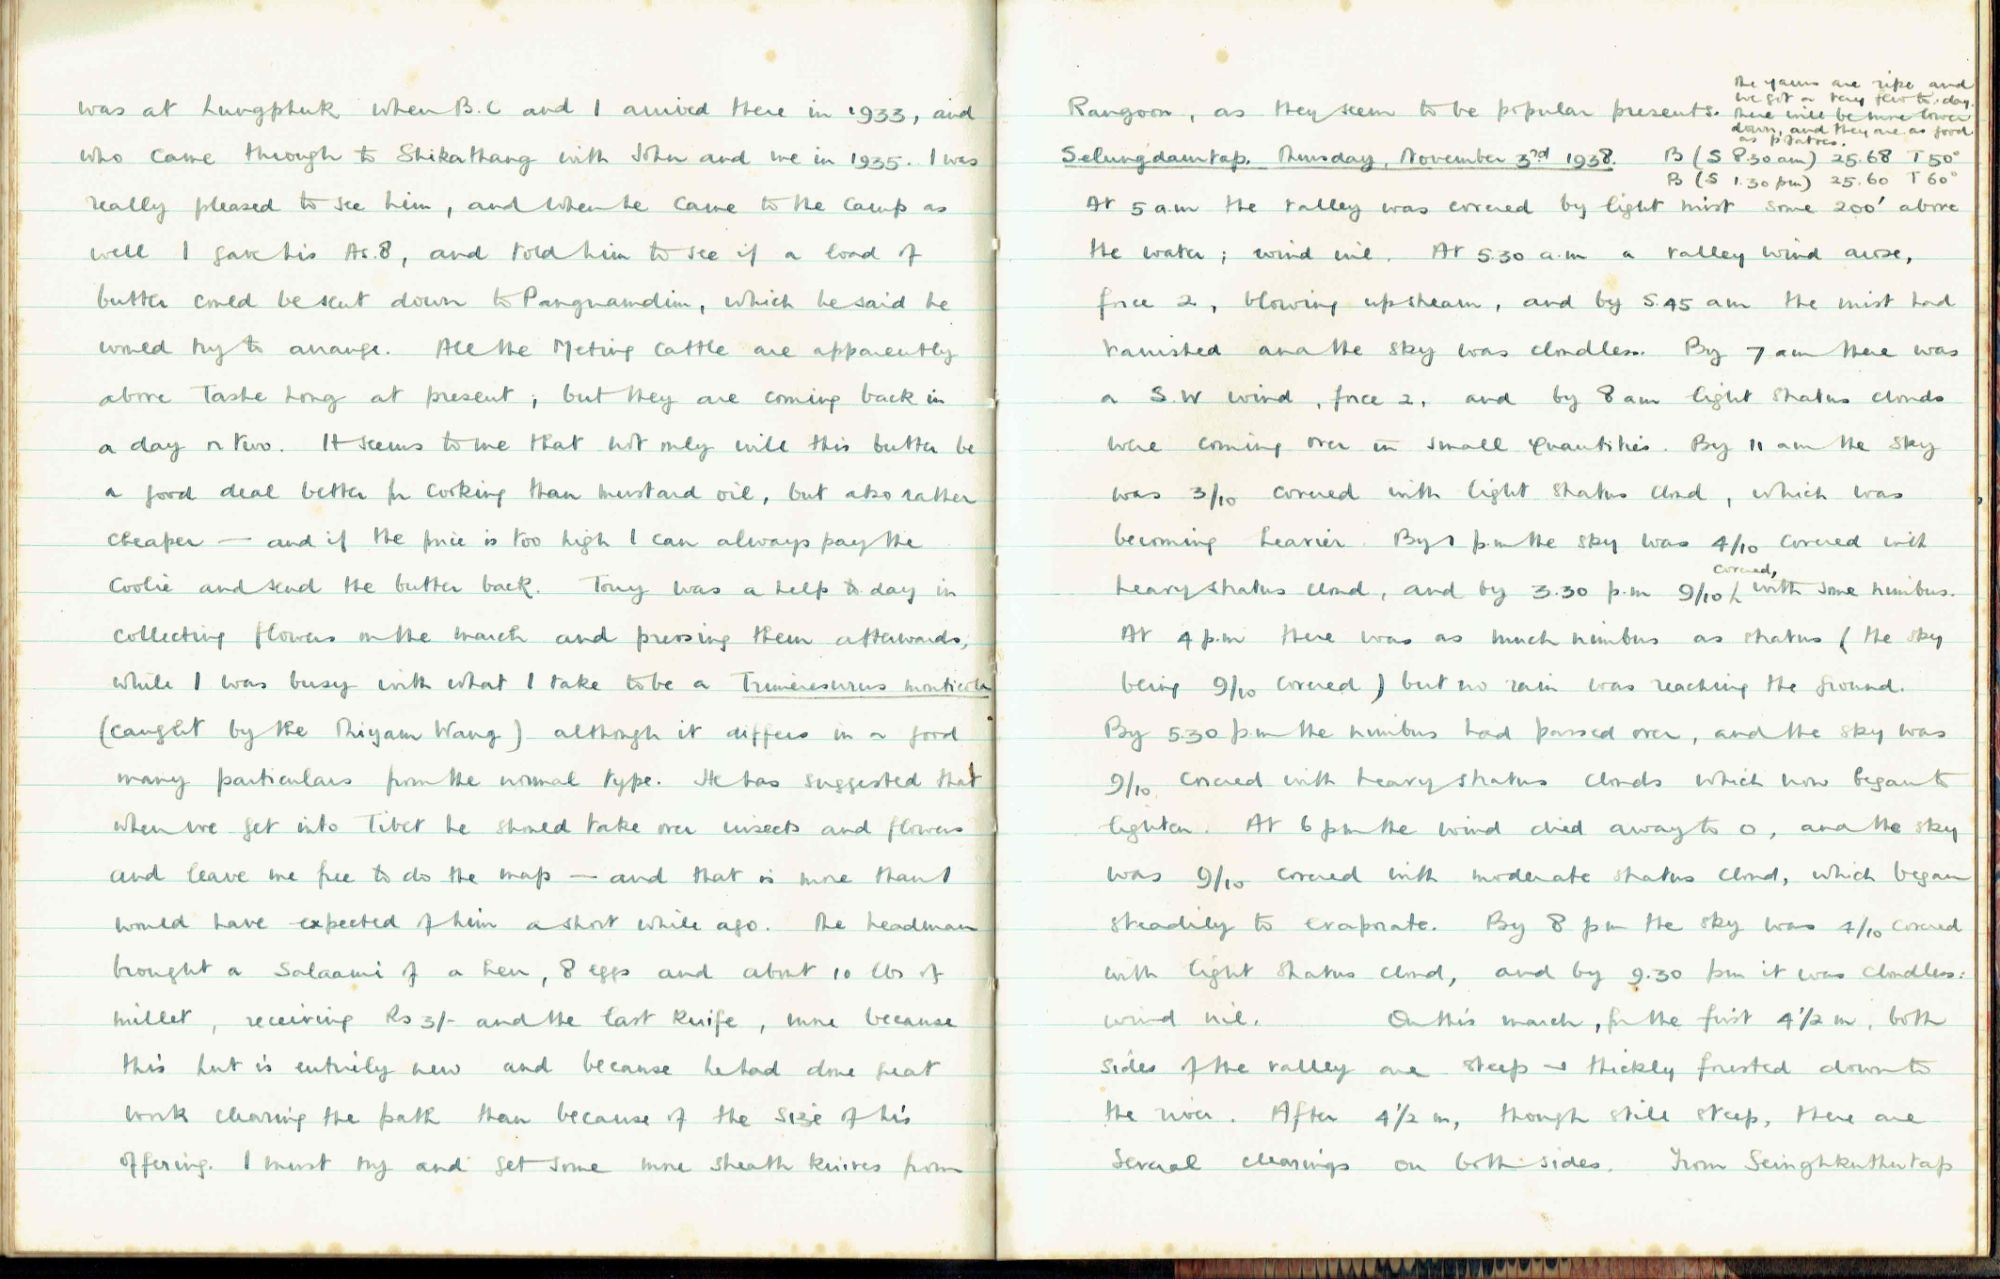 was at Lungphuk when B.C and I arrived there in 1933, and
who came through to Shikathang with John and me in 1935. I was
really pleased to see him, and when he came to the camp as
well I gave his As.8, and told him to see if a load of
butter could be sent down to Pangnamdim, which he said he
would try to arrange. All the Meting cattle are apparently
above Tashe hong at present; but they are coming back in
a day or two. It seems to me that not only will this butter be
a good deal better for cooking than mustard oil, but also rather
cheaper — and if the price is too high I can always pay the
coolie and send the butter back. Tony was a help to day in
collecting flowers on the march and pressing them afterwards,
while I was busy with what I take to be a Trimeresurus monticola
(caught by the Thiyam Wang) although it differs in a good
many particulars from the normal type. He has suggested that
when we get into Tibet he should take over insects and flowers
and leave me free to do the map — and that is more than I
would have expected of him a short while ago. The headman
brought a Salaami of a hen, 8 eggs and about 10 lbs of
millet, receiving Rs 3/- and the last knife, more because
this hut is entirely new and because he had done great
work clearing the path than because of the size of his
offering. I must try and get some more sheath knives from
Rangoon, as they seem to be popular presents. The yams are ripe and
we got a very few to-day.
There will be more lower
down, and they are as good
as potatoes.
Selungdamtap. Thursday, November 3rd 1938. B (S 8.30 am) 25.68 T 50°
B (S 1.30 pm) 25.60 T 60°
At 5 a.m the valley was covered by light mist some 200' above
the water; wind nil. At 5.30 a.m a valley wind arose,
force 2, blowing upstream, and by 5.45 am the mist had
vanished and the sky was cloudless. By 7 am there was
a S.W wind, force 2, and by 8 am light stratus clouds
were coming over in small quantities. By 11 am the sky
was 3/10 covered with light stratus cloud, which was
becoming heavier. By 1 p.m the sky was 4/10 covered with
heavy stratus cloud, and by 3.30 p.m 9/10 covered, with some nimbus.
At 4 p.m there was as much nimbus as stratus (the sky
being 9/10 covered) but no rain was reaching the ground.
By 5.30 p.m the nimbus had passed over, and the sky was
9/10 covered with heavy stratus clouds which now began to
lighten. At 6 pm the wind died away to 0, and the sky
was 9/10 covered with moderate stratus cloud, which began
steadily to evaporate. By 8 pm the sky was 4/10 covered
with light stratus cloud, and by 9.30 pm it was cloudless:
wind nil. On this march, for the first 4 1/2 m, both
sides of the valley are steep & thickly forested down to
the river. After 4 1/2 m, though still steep, there are
several clearings on both sides. From Seinghkuthutap